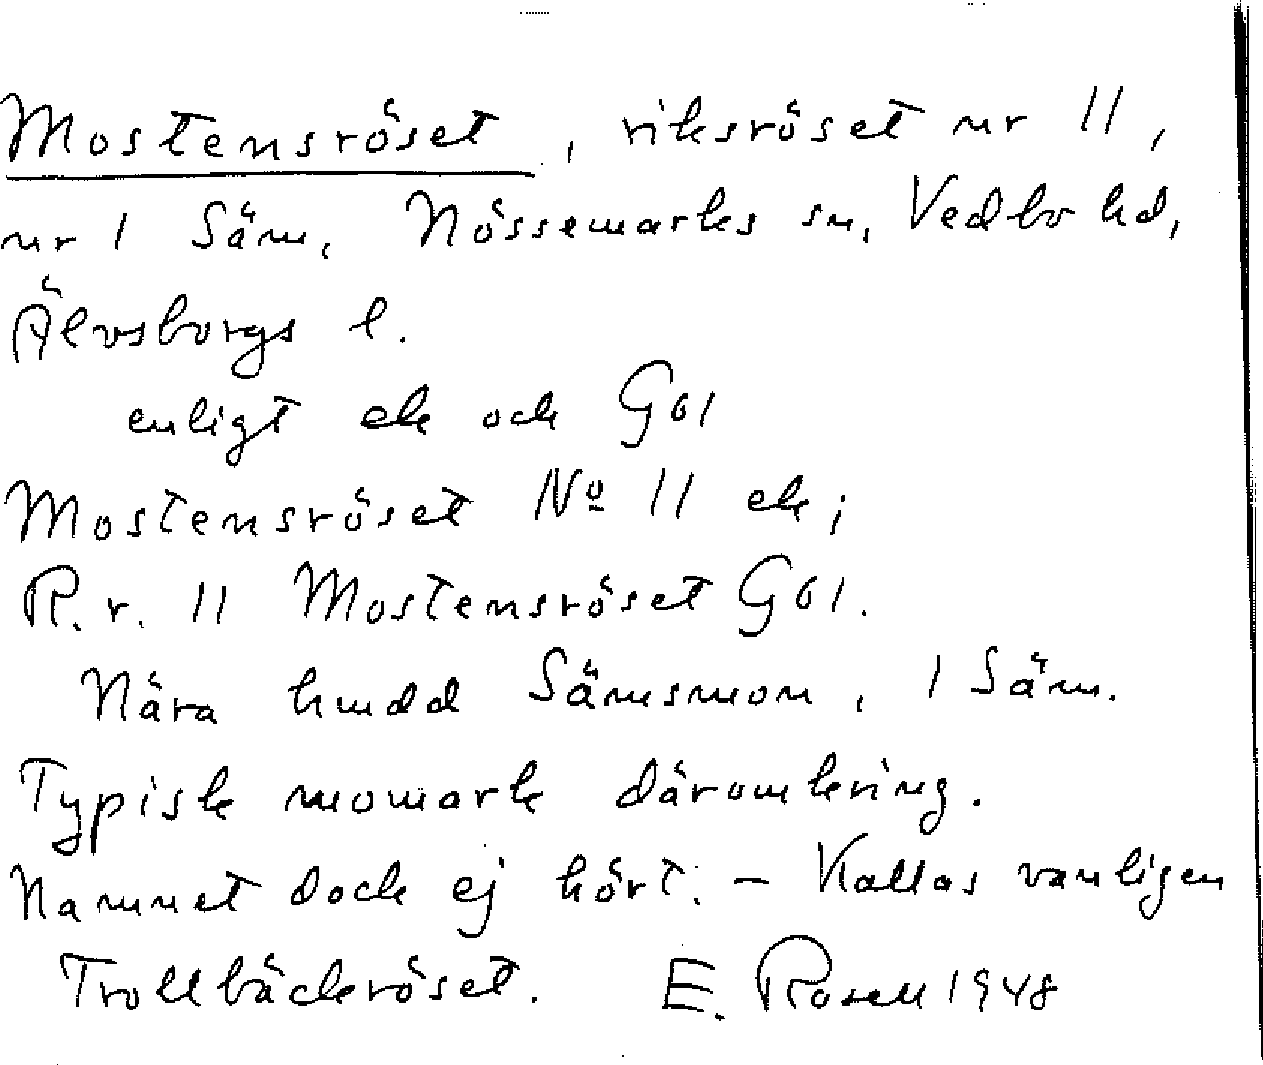 Mostensröset, riksröset nr 11,
nr 1 Säm, Nössemarks sn, Vedbo hd,
Älvsborgs l.
enligt ek och G61
Mostensröset Nº 11 ek;
R.r. 11 Mostensröset G61.
Nära hmdd Sämsmon, 1 Säm.
Typisk momark däromkring.
Namnet dock ej hört. – Kallas vanligen
Trollbäckröset. E. Rosell 1948